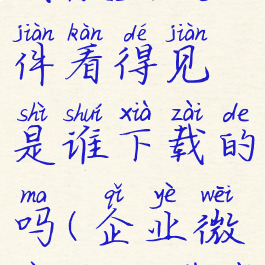 jiàn kàn dé jiàn
件看得见
shì shuí xià zài de
是谁下载的
ma qǐ yè wēi
吗(企业微